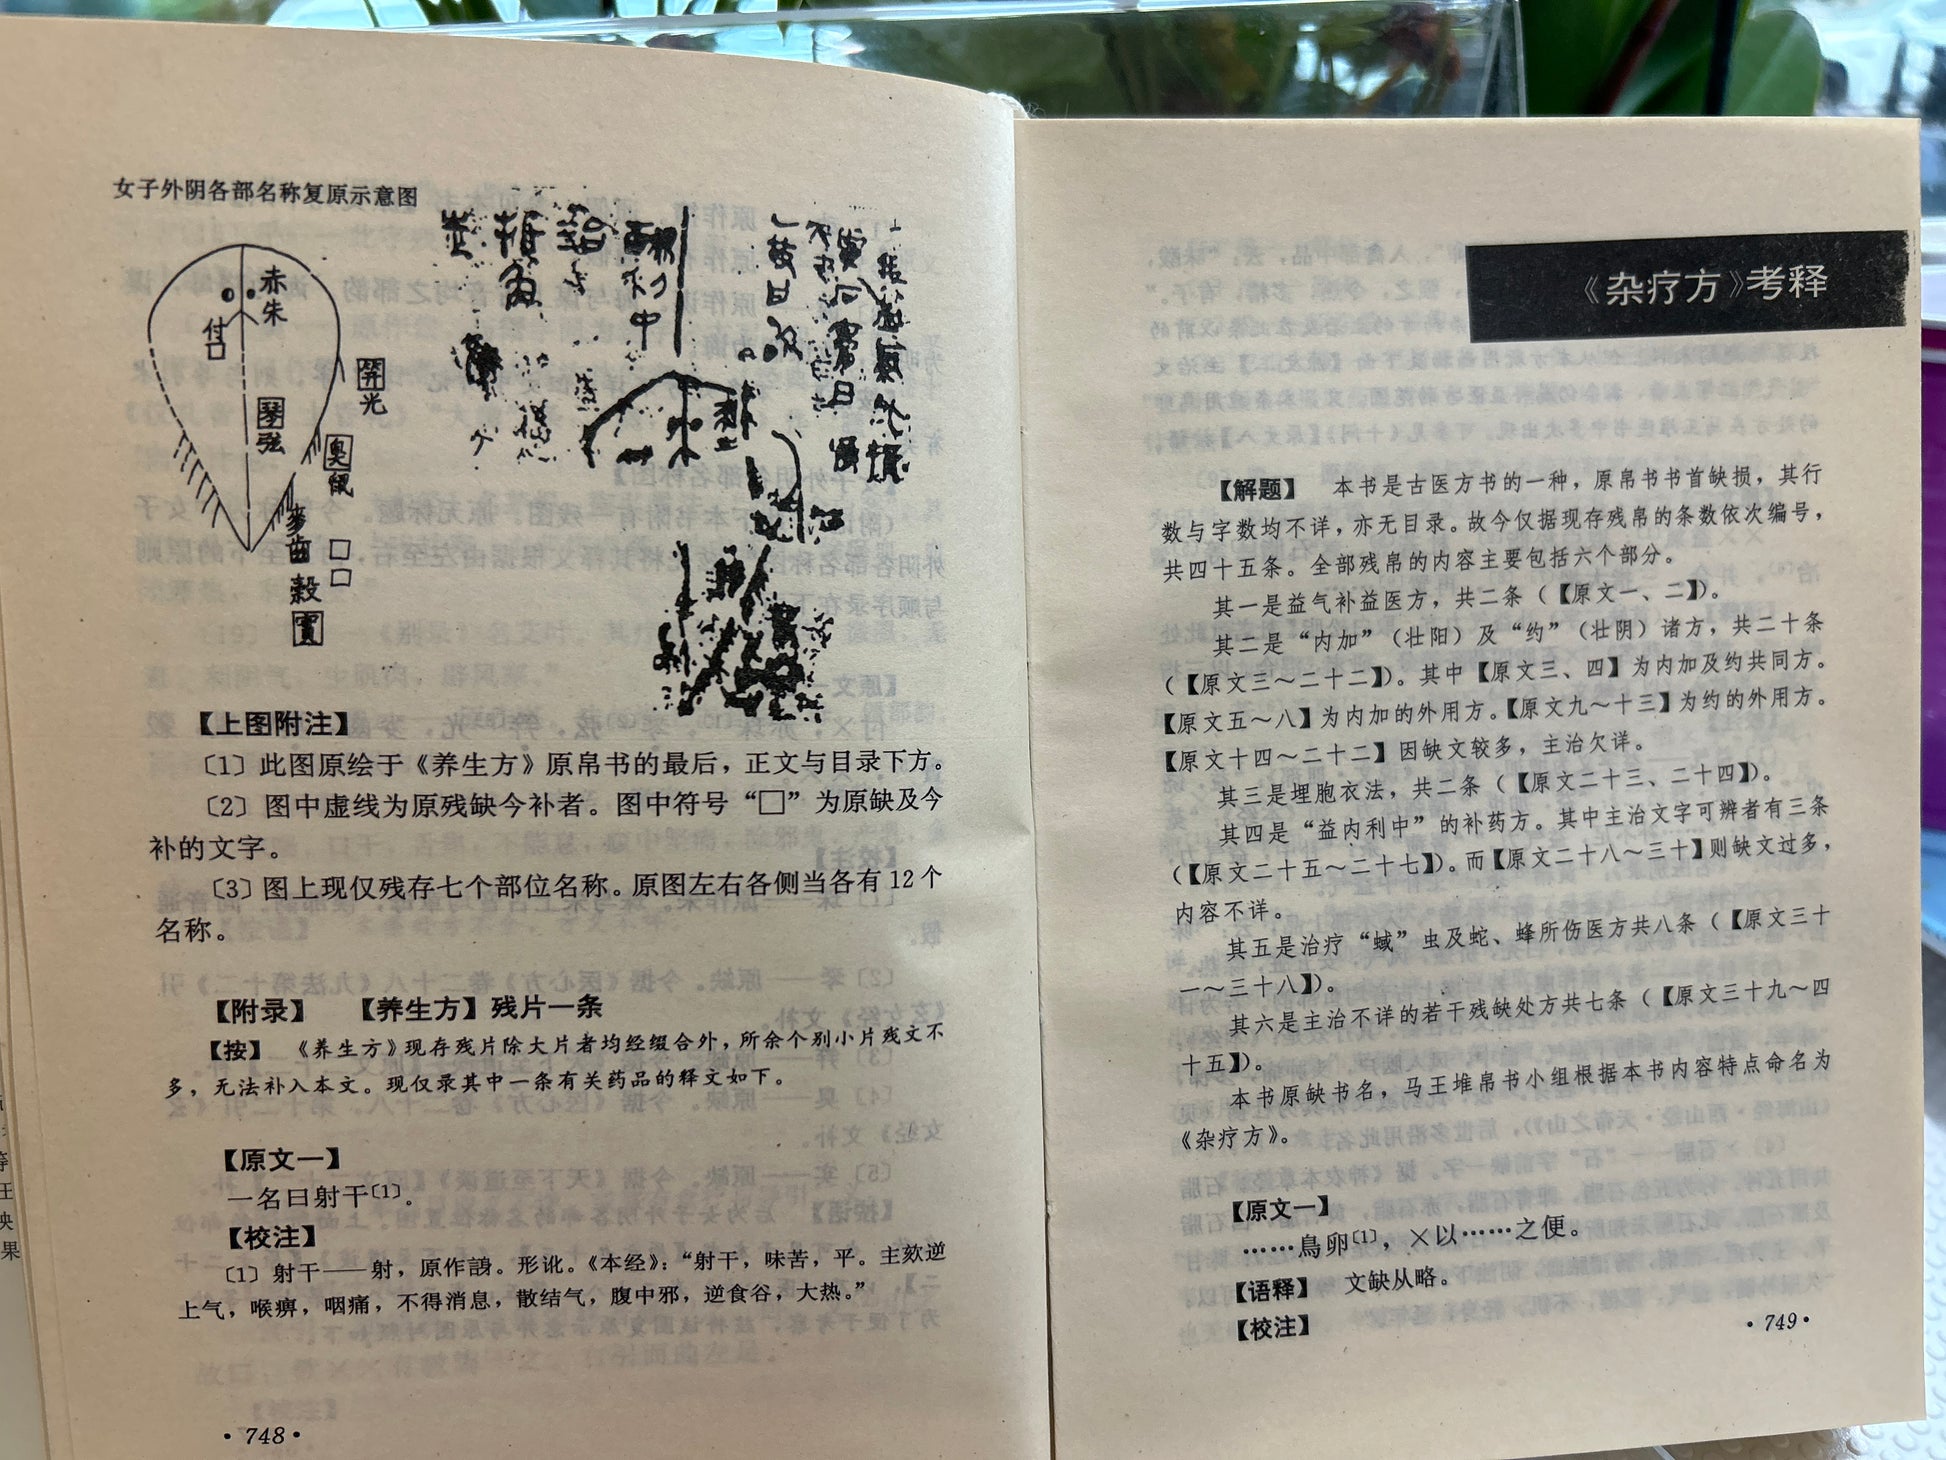 女子外阴各部名称复原示意图
赤
朱
付
□
笄
光
琴
弦
臭
鼠
麥
齒
□
□
穀
實
【上图附注】
〔1〕此图原绘于《养生方》原帛书的最后，正文与目录下方。
〔2〕图中虚线为原残缺今补者。图中符号“□”为原缺及今
补的文字。
〔3〕图上现仅残存七个部位名称。原图左右各侧当各有12个
名称。
【附录】 【养生方】残片一条
【按】 《养生方》现存残片除大片者均经缀合外，所余个别小片残文不
多，无法补入本文。现仅录其中一条有关药品的释文如下。
【原文一】
一名曰射干〔1〕。
【校注】
〔1〕射干——射，原作䠶。形讹。《本经》：“射干，味苦，平。主欬逆
上气，喉痹，咽痛，不得消息，散结气，腹中邪，逆食谷，大热。”
·748·
《杂疗方》考释
【解题】 本书是古医方书的一种，原帛书书首缺损，其行
数与字数均不详，亦无目录。故今仅据现存残帛的条数依次编号，
共四十五条。全部残帛的内容主要包括六个部分。
其一是益气补益医方，共二条（【原文一、二】）。
其二是“内加”（壮阳）及“约”（壮阴）诸方，共二十条
（【原文三～二十二】）。其中【原文三、四】为内加及约共同方。
【原文五～八】为内加的外用方。【原文九～十三】为约的外用方。
【原文十四～二十二】因缺文较多，主治欠详。
其三是埋胞衣法，共二条（【原文二十三、二十四】）。
其四是“益内利中”的补药方。其中主治文字可辨者有三条
（【原文二十五～二十七】）。而【原文二十八～三十】则缺文过多，
内容不详。
其五是治疗“蜮”虫及蛇、蜂所伤医方共八条（【原文三十
一～三十八】）。
其六是主治不详的若干残缺处方共七条（【原文三十九～四
十五】）。
本书原缺书名，马王堆帛书小组根据本书内容特点命名为
《杂疗方》。
【原文一】
……鳥卵〔1〕，×以……之便。
【语释】 文缺从略。
【校注】
·749·